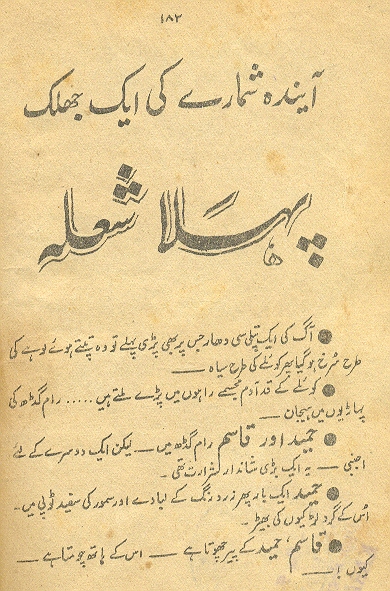 ۱۸۲
آیندہ شمارے کی ایک جھلک
پہلا شعلہ
● آگ کی ایک پتلی سی دھار جس پر بھی پڑی پہلے تو وہ تپتے ہوئے لوہے کی
طرح سُرخ ہو گیا پھر کوئلے کی طرح سیاہ ــــ
● کوئلے کے قدِ آدم مجسمے راہوں میں پڑے ملتے ہیں ..... رام گڈھ کی
پہاڑیوں میں ہیجان ــــ
● حمید اور قاسم رام گڈھ میں ــــ لیکن ایک دوسرے کے لئے
اجنبی ــــ یہ ایک بڑی شاندار شرارت تھی۔
● حمید ایک بار پھر زرد رنگ کے لبادے اور سمور کی سفید ٹوپی میں۔
اُس کے گرد لڑکیوں کی بھیڑ۔
● قاسم، حمید کے پیر چھوتا ہے ــــ اس کے ہاتھ چومتا ہے ــــ
کیوں !ــــ